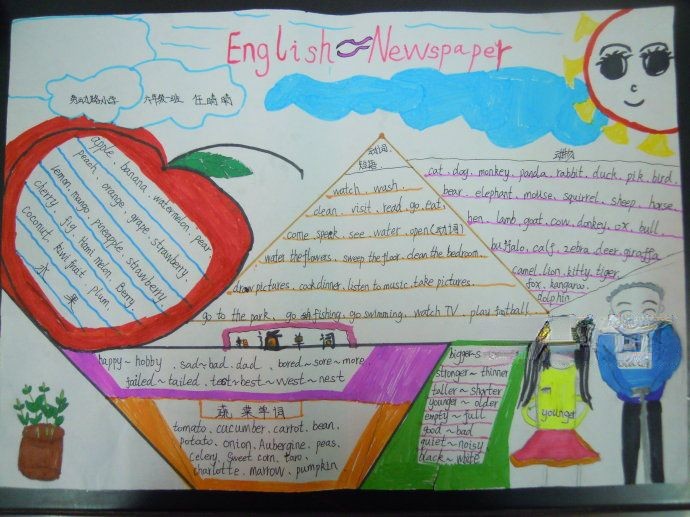 English Newspaper
六年级一班 任晴晴
apple、banana、watermelon、pear
peach、orange、grape、strawberry、
lemon、mango、pineapple strawberry、
cherry、fig、Hami melon、Berry、
coconut、kiwi fruit、plum、
水果
动词
短语
watch、wash、
clean、visit、read、go、eat、
come speak see、water、open(动词)
water the flowers、sweep the floor、clean the bedroom、
draw pictures、cook dinner、listen to music、take pictures、
go to the park、go fishing、go swimming、watch TV、play football
动物
cat、dog、monkey、panda、rabbit、duck、pik、bird、
bear、elephant、mouse、squirrel、sheep、horse、
hen、lamb、goat、cow、donkey、ox、bull、
buffalo、calf、zebra、deer、giraffa
camel、lion、kitty、tiger、
fox、kangaroo、
dolphin
短语单词
happy~hobby、sad~bad、dad、bored~sore~more
failed~tailed、test~best~west~nest
蔬菜单词
tomato、cucumber、carrot、bean、
potato、onion、Aubergine、peas、
celery、sweet corn、taro、
charlotte、marrow、pumpkin
stronger~thinner
taller~shorter
younger~older
empty~full
good~bad
quiet~noisy
black~white
younger